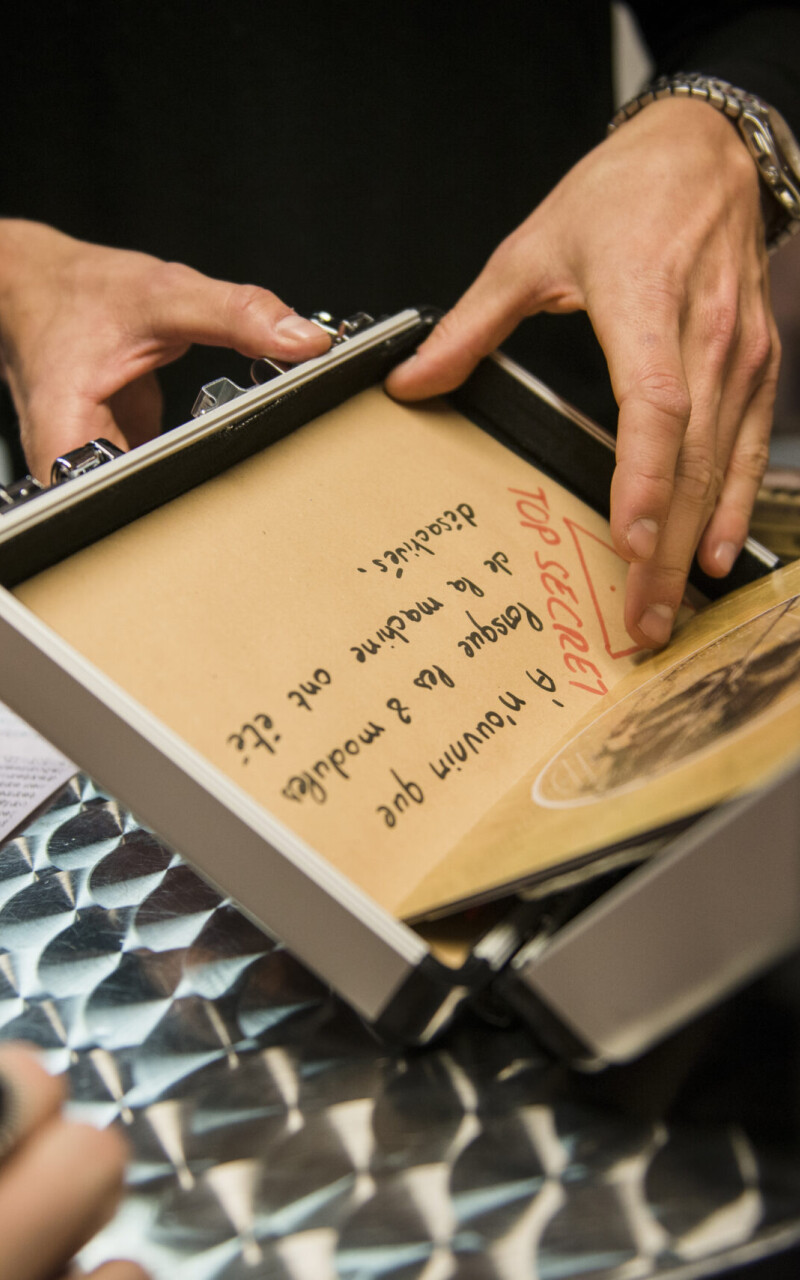 TOP SECRET
A n'ouvrir que
losque les 8 modules
de la machine ont été
désactivés.